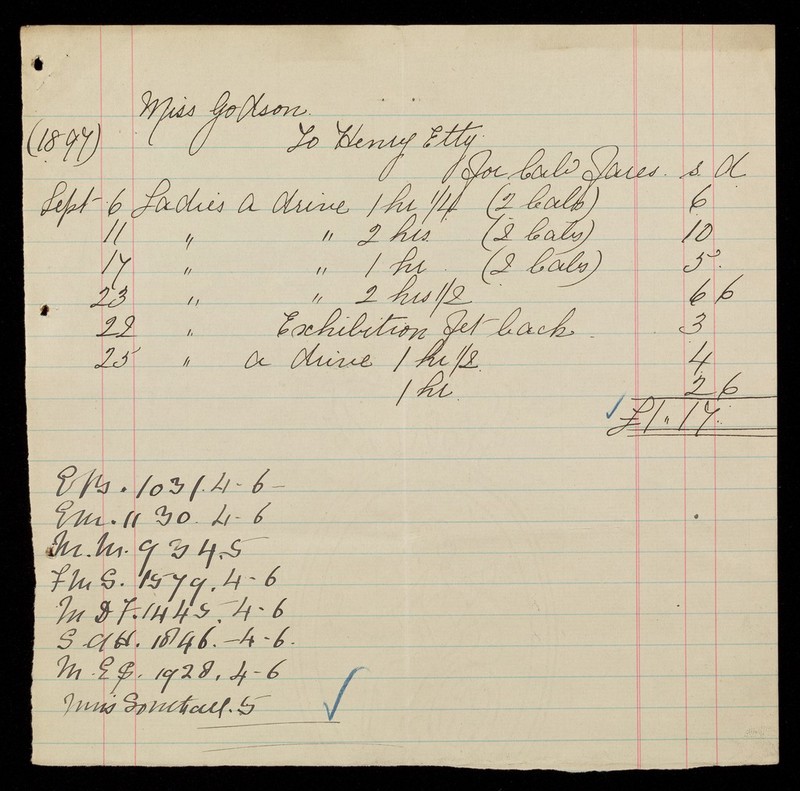 Miss Godson
(1897)
To Henry Etty
For Cab Fares. s d
Sept 6 Ladies a drive 1 hr 1/4 (2 Cabs) 6
11 " " 2 hrs (2 Cabs) 10
17 " " 1 hr (2 Cabs) 5
23 " " 2 hrs 1/2 6 6
22 " Exhibition Jet back 3
25 " a drive 1 hr 1/2 4
1 hr 2 6
£1 " 17
1031. 4-6-
EM. 1130. 4-6
M.M. 934.5
F M G. 1579. 4-6
M D F. 1445. -4-6
1846. -4-6.
1928. 4-6
5